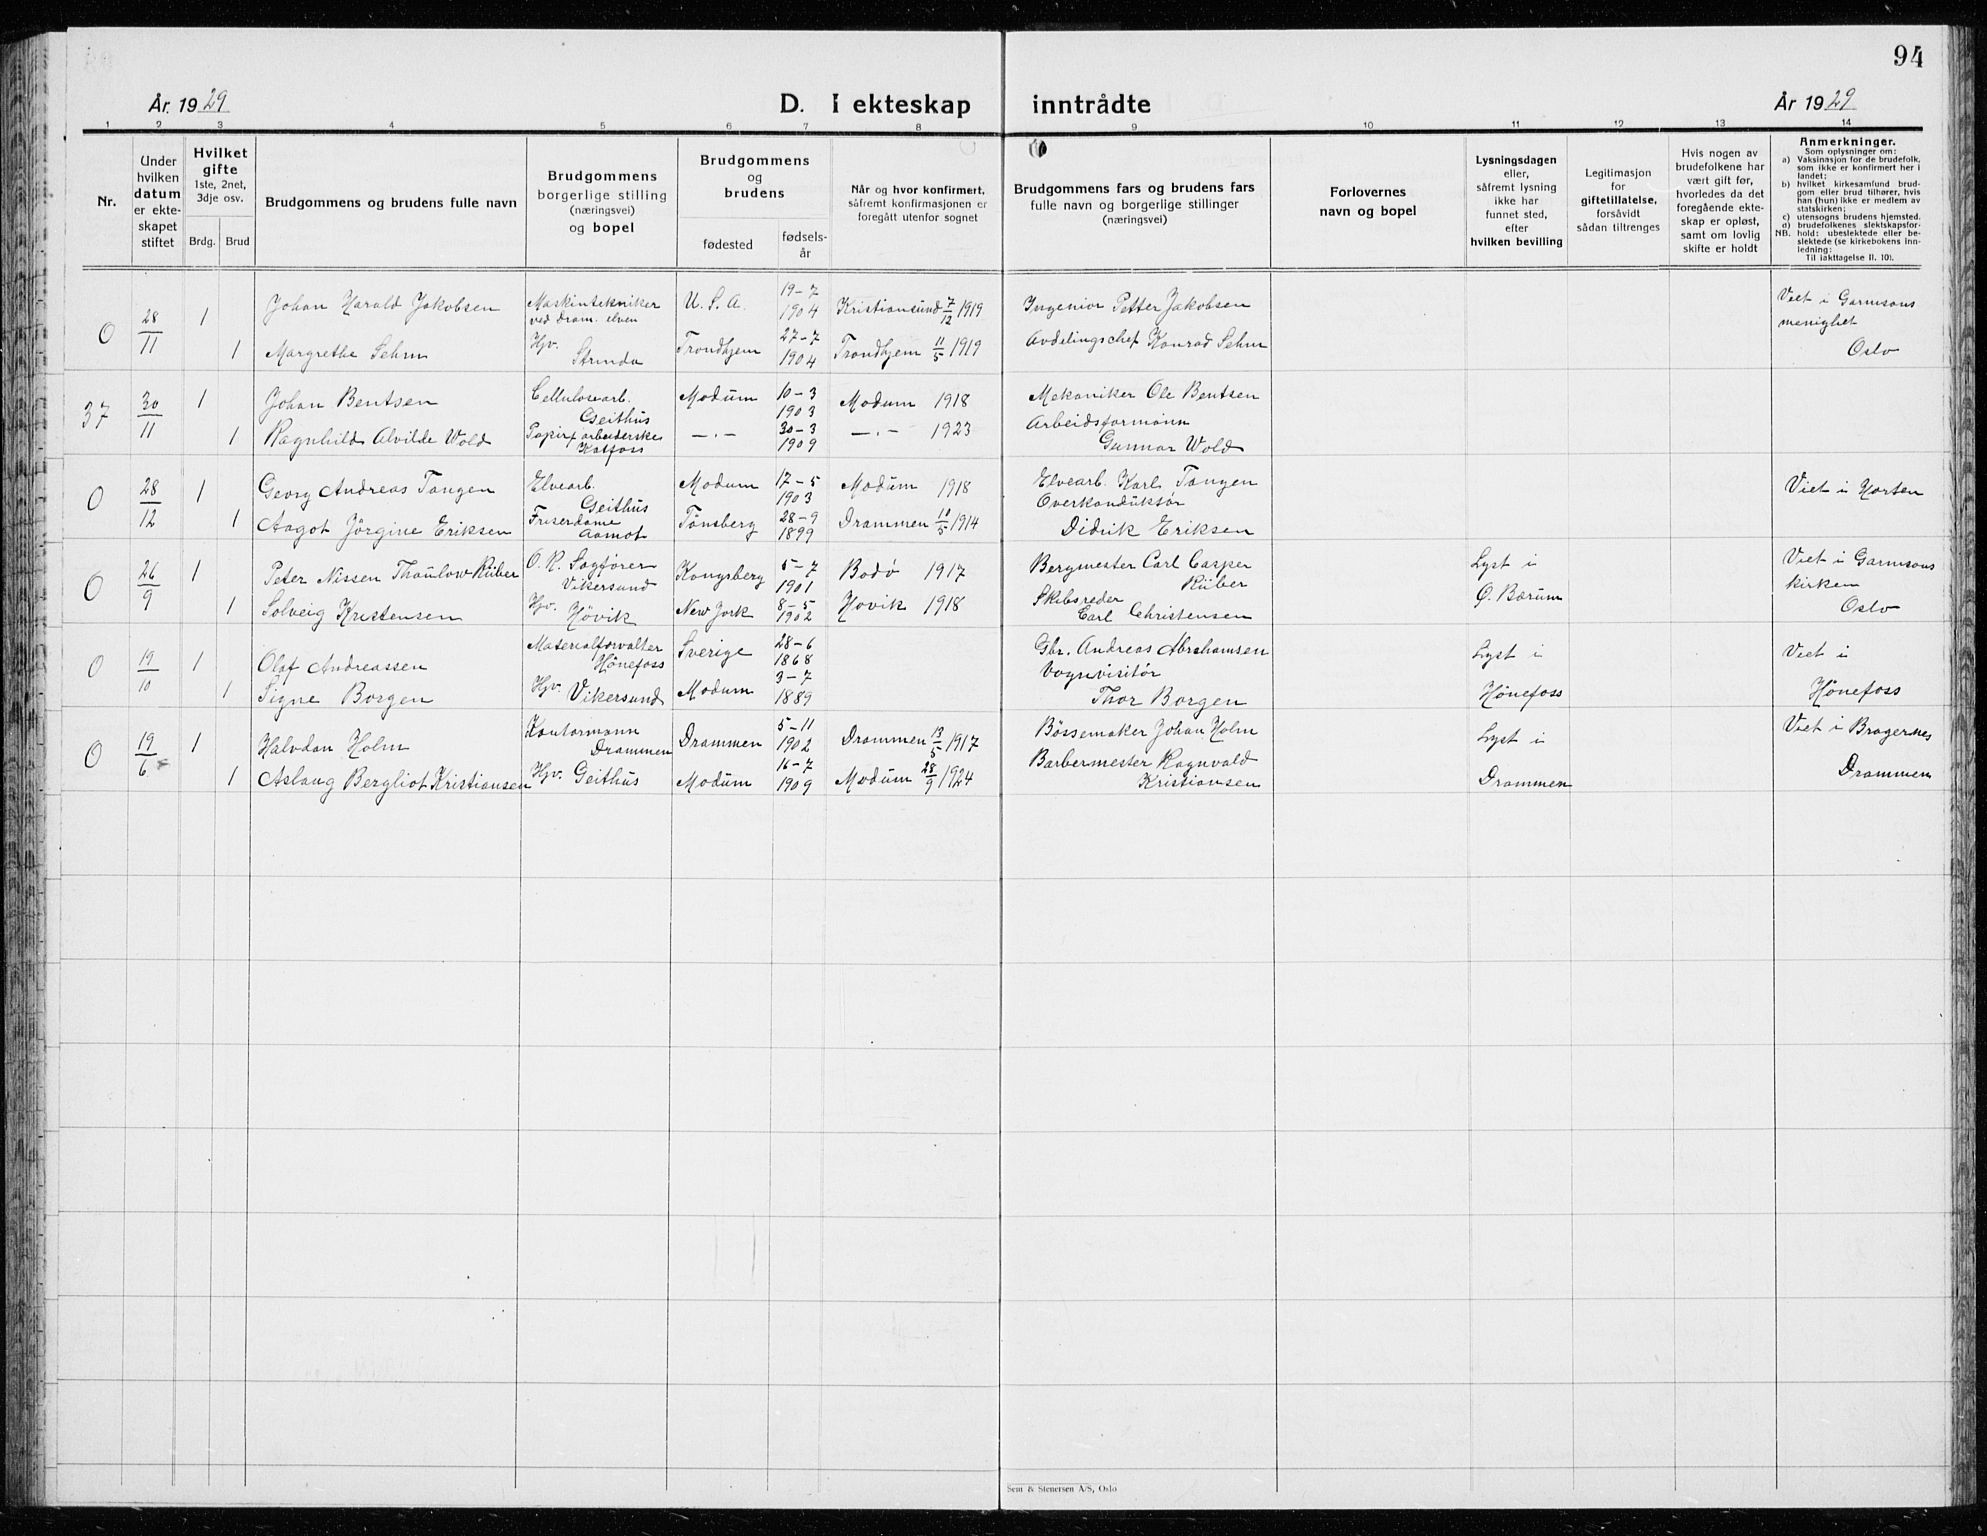 94
År. 1929
D. I ekteskap inntrådte
År 1929
1 2 3 4 5 6 7 8 9 10 11 12 13 14
Nr.
Under hvilken datum er ekte-skapet stiftet
Hvilket gifte
1ste, 2net, 3dje osv.
Brdg. Brud
Brudgommens og brudens fulle navn
Brudgommens borgerlige stilling (næringsvei) og bopel
Brudgommens og brudens
fødested
fødsels-år
Når og hvor konfirmert, såfremt konfirmasjonen er foregått utenfor sognet
Brudgommens fars og brudens fars fulle navn og borgerlige stillinger (næringsvei)
Forlovernes navn og bopel
Lysningsdagen eller, såfremt lysning ikke har funnet sted, efter hvilken bevilling
Legitimasjon for giftetillatelse, forsåvidt sådan tiltrenges
Hvis nogen av brudefolkene har vært gift før, hvorledes da det foregående ekte-skap er opløst, samt om lovlig skifte er holdt
Anmerkninger.
Som oplysninger om:
a) Vaksinasjon for de brudefolk, som ikke er konfirmert her i landet;
b) hvilket kirkesamfund brud-gom eller brud tilhører, hvis han (hun) ikke er medlem av statskirken;
c) utensogns brudens hjemsted.
d) brudefolkenes slektskapsfor-hold: ubeslektede eller be-slektede (se kirkebokens inn-ledning;
NB.
Til iakttagelse II. 10).
O 28/11 1 Johan Harald Jakobsen Maskintekniker ved Dram. elven U. S. A. 19-7 1904 Kristiansund 7/12 1919 Ingeniør Petter Jakobsen Viet i Garmsons menighet Oslo
1 Margrethe Sehm Hjv. Strinda Trondhjem 27-7 1904 Trondhjem 11/5 1919 Avdelingschef Konrad Sehm
37 30/11 1 Johan Bentsen Cellulosearb. Geithus Modum 10-3 1903 Modum 1918 Mekaniker Ole Bentsen
1 Ragnhild Alvilde Wold Papirfarbeiderske Katfoss —"— 30-3 1909 —"— 1923 Arbeidsformann Gunnar Wold
O 28/12 1 Georg Andreas Tangen Elvearb. Geithus Modum 17-5 1903 Modum 1918 Elvearb. Karl Tangen Viet i Horten
1 Aagot Jörgine Eriksen Friserdame Aamot Tønsberg 28-9 1899 Drammen 10/5 1914 Overkonduktør Didrik Eriksen
O 26/9 1 Peter Nissen Thaulow Rüber O. R. Sagfører Vikersund Kongsberg 5-7 1901 Bodø 1917 Bergmester Carl Casper Rüber Lyst i Ø. Bærum Viet i Garmsons kirken Oslo
1 Solveig Kristensen Hjv. Hövik New Jork 8-5 1902 Hovik 1918 Skibsreder Carl Christensen
O 19/10 1 Olaf Andreassen Materialforvalter Hönefoss Sverige 28-6 1868 Gbr. Andreas Abrahamsen Lyst i Hönefoss Viet i Hönefoss
1 Signe Borgen Hjv. Vikersund Modum 3-7 1889 Vognvisitør Thor Borgen
O 19/6 1 Halvdan Holm Kontormann Drammen Drammen 5-11 1902 Drammen 13/5 1917 Bössemaker Johan Holm Lyst i Drammen Viet i Bragernes Drammen
1 Aslaug Bergliot Kristiansen Hjv. Geithus Modum 16-7 1909 Modum 28/9 1924 Barbermester Ragnvald Kristiansen
Sem & Stenersen A/S, Oslo